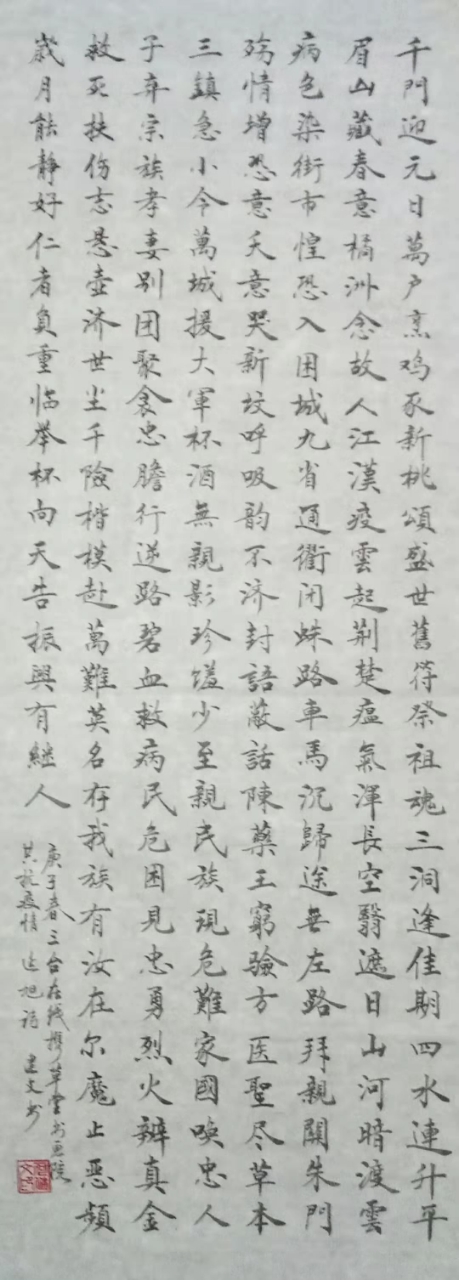 千門迎元日萬户烹鸡豕新桃頌盛世舊符祭祖魂三洞逢佳期四水連升平
眉山藏春意橘洲念故人江漢疫雲起荆楚瘟氣渾長空翳遮日山河暗渡雲
病色染街市惶恐入困城九省通衢闭蛛路車馬沉歸途無左路拜親關朱門
殇情增恐意天意哭新坟呼吸韵不济封語蔽話陳藥王窮驗方医聖尽草本
三鎮急小令萬城援大軍杯酒無親影珍馐少至親民族現危難家國唤忠人
子弃宗族孝妻别团聚衾忠膽行逆路碧血救病民危困見忠勇烈火辨真金
救死扶伤志悬壶济世尘千險楷模赴萬難英名存我族有汝在尔魔止恶頻
歲月能静好仁者負重临举杯向天告振興有継人
庚子春三台在线携草堂书画院
共抗疫情 旭诗 建文书